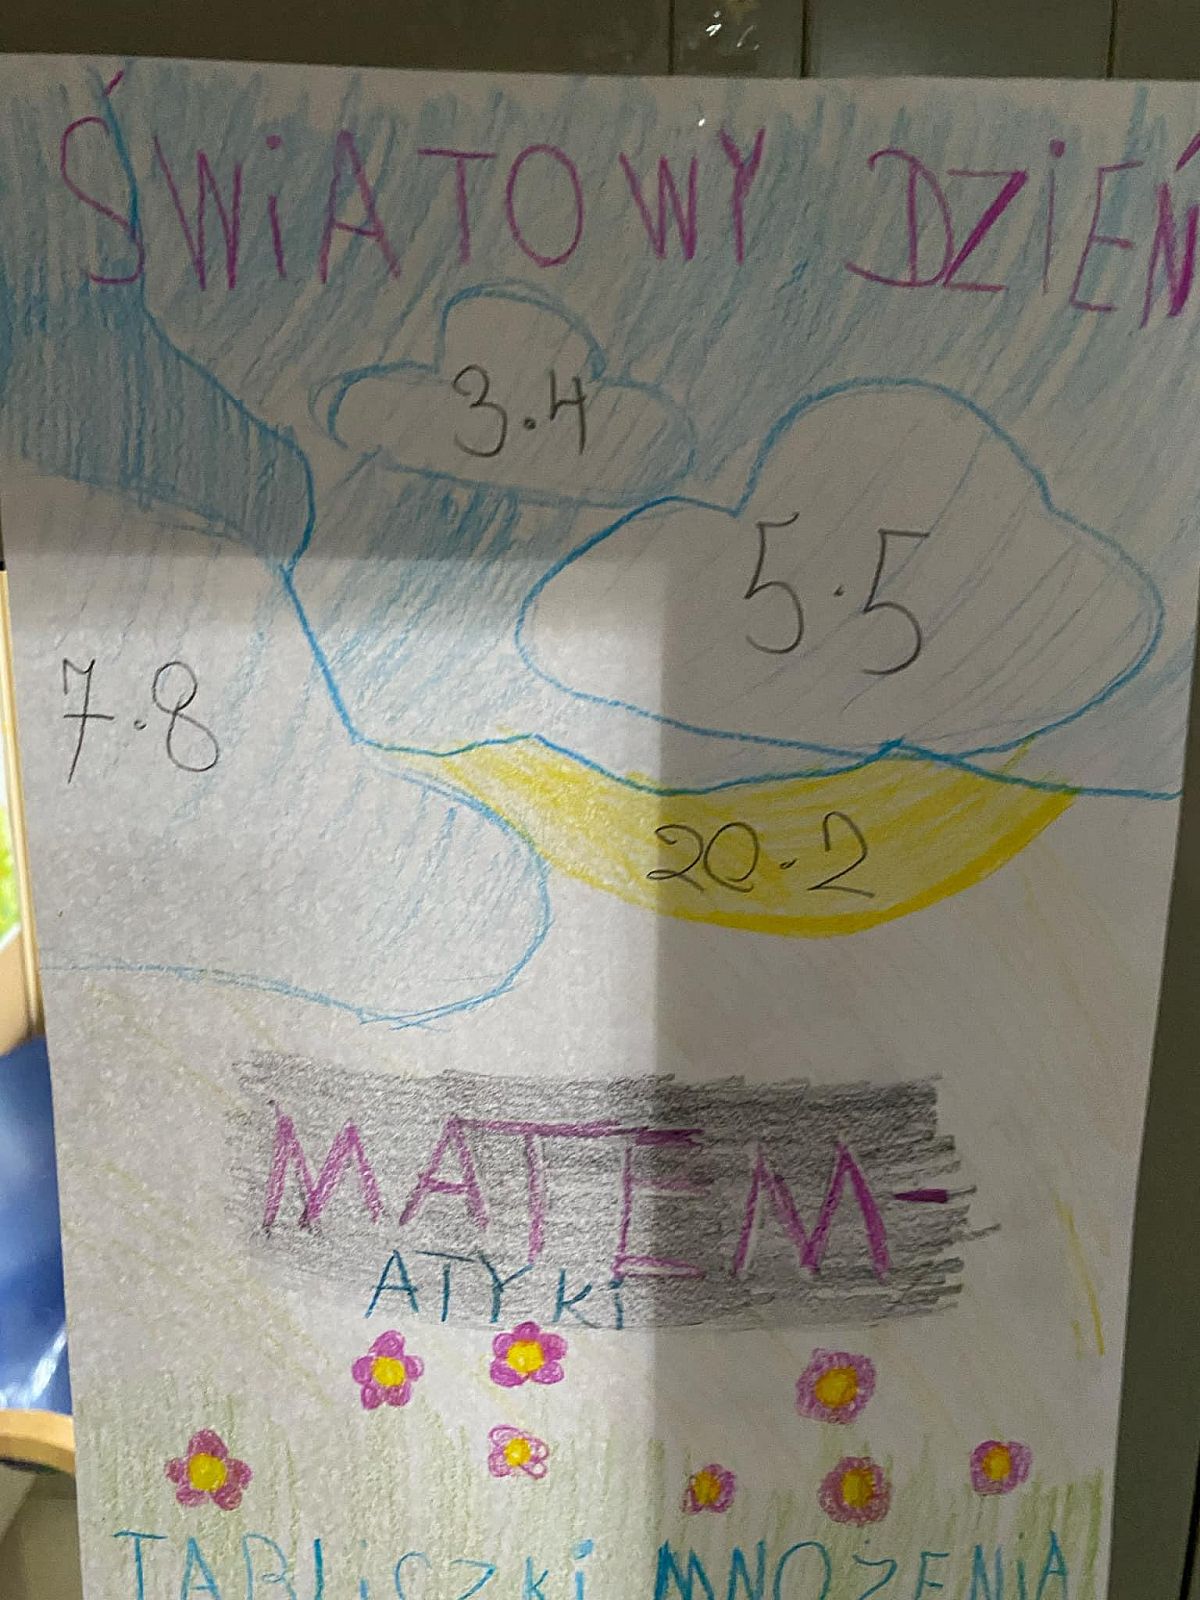 ŚWiATOWY DZiEŃ
3.4
5.5
7.8
20.2
MATEM-
ATYki
TABLiCZki MNOŻENiA